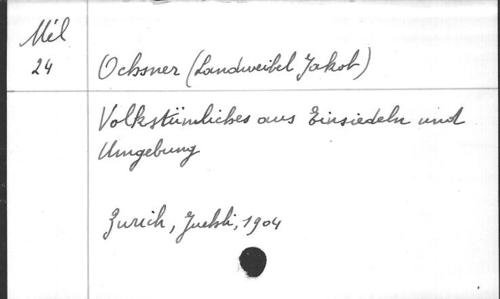 Mél
24 Ochsner (Landweibel Jakob)
Volkstümliches aus Einsiedeln und
Umgebung
Zurich, Juchli, 1904